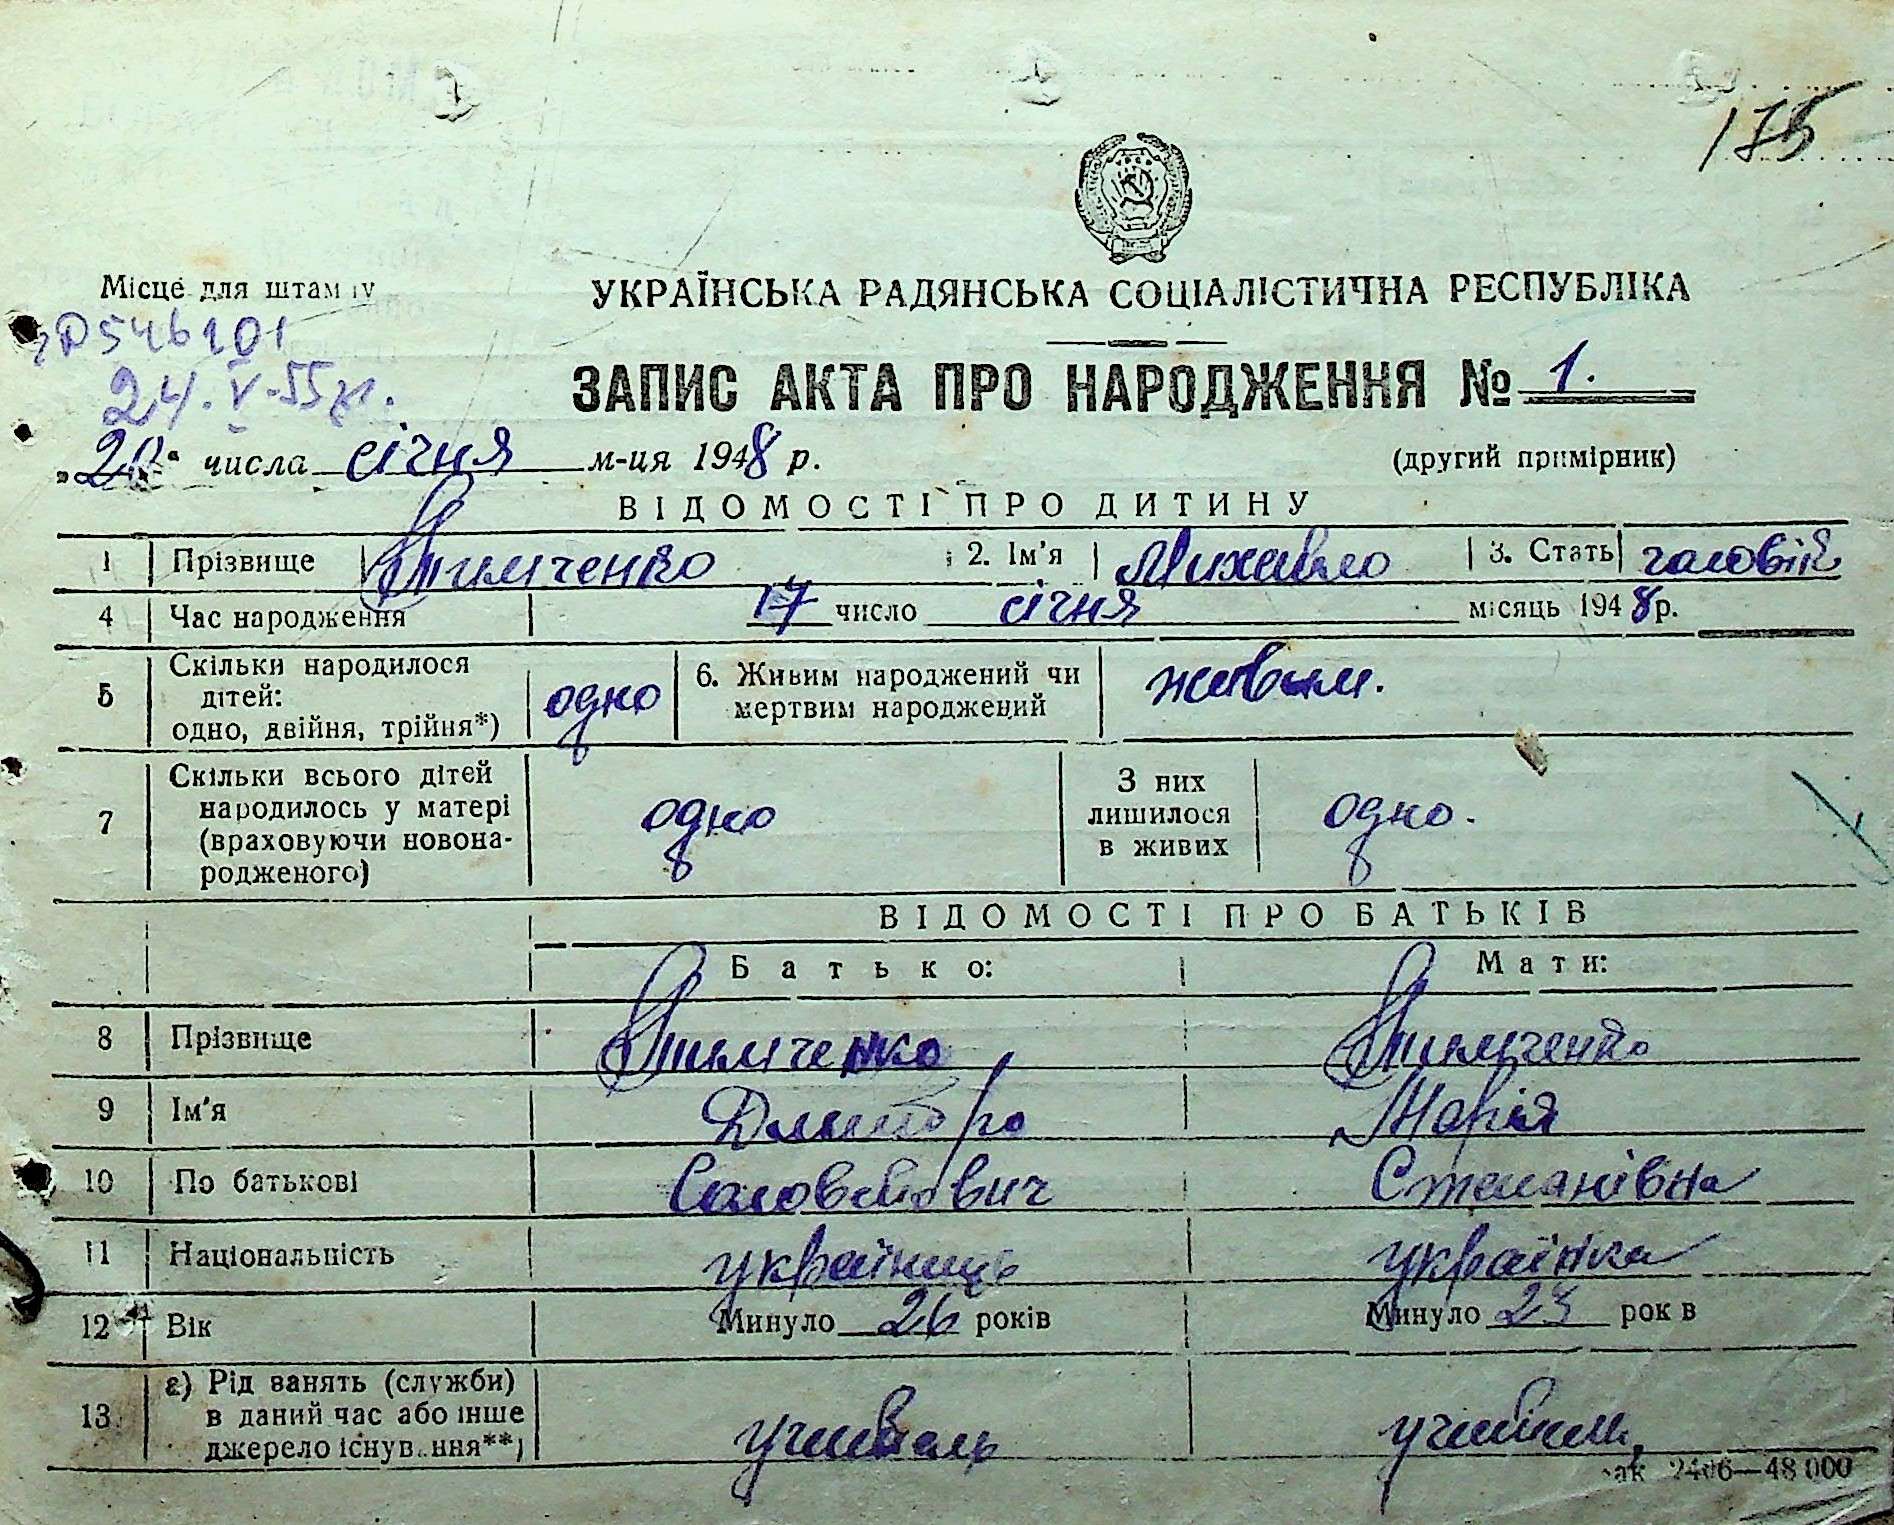 175
УКРАЇНСЬКА РАДЯНСЬКА СОЦІАЛІСТИЧНА РЕСПУБЛІКА
Місце для штампу
546101
24.V-55р.
ЗАПИС АКТА ПРО НАРОДЖЕННЯ № 1.
„20“ числа січня м-ця 1948 р. (другий примірник)
ВІДОМОСТІ ПРО ДИТИНУ
1 Прізвище Тимченко 2. Ім'я Михайло 3. Стать чоловік
4 Час народження 17 число січня місяць 1948 р.
5 Скільки народилося дітей: одно, двійня, трійня*) одно 6. Живим народжений чи мертвим народжений живим.
7 Скільки всього дітей народилось у матері (враховуючи новонародженого) одно З них лишилося в живих одно.
ВІДОМОСТІ ПРО БАТЬКІВ
Батько: Мати:
8 Прізвище Тимченко Тимченко
9 Ім'я Дмитро Марія
10 По батькові Соловейович Степанівна
11 Національність українець українка
12 Вік Минуло 26 років Минуло рок в
13 а) Рід занять (служби) в даний час або інше джерело існування**) учитель учитель
2406—48 000